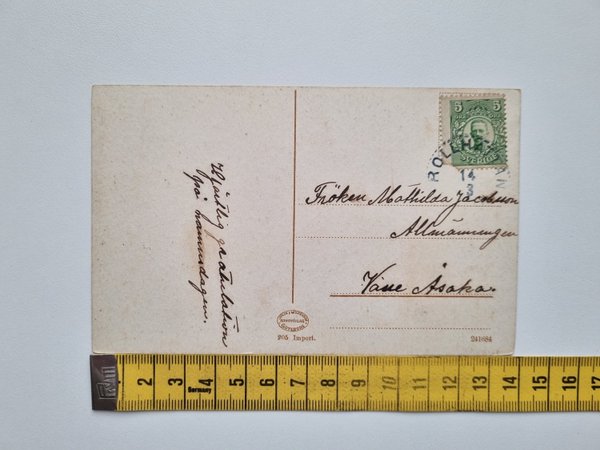 5
SVERIGE
14
3
Hjärtlig gratulation
på namnsdagen.
Fröken Mathilda Jacobsson
Allmänningen
Väne Åsaka.
205 Import.
241684
2 3 4 5 6 7 8 9 10 11 12 13 14 15 16 17
Germany